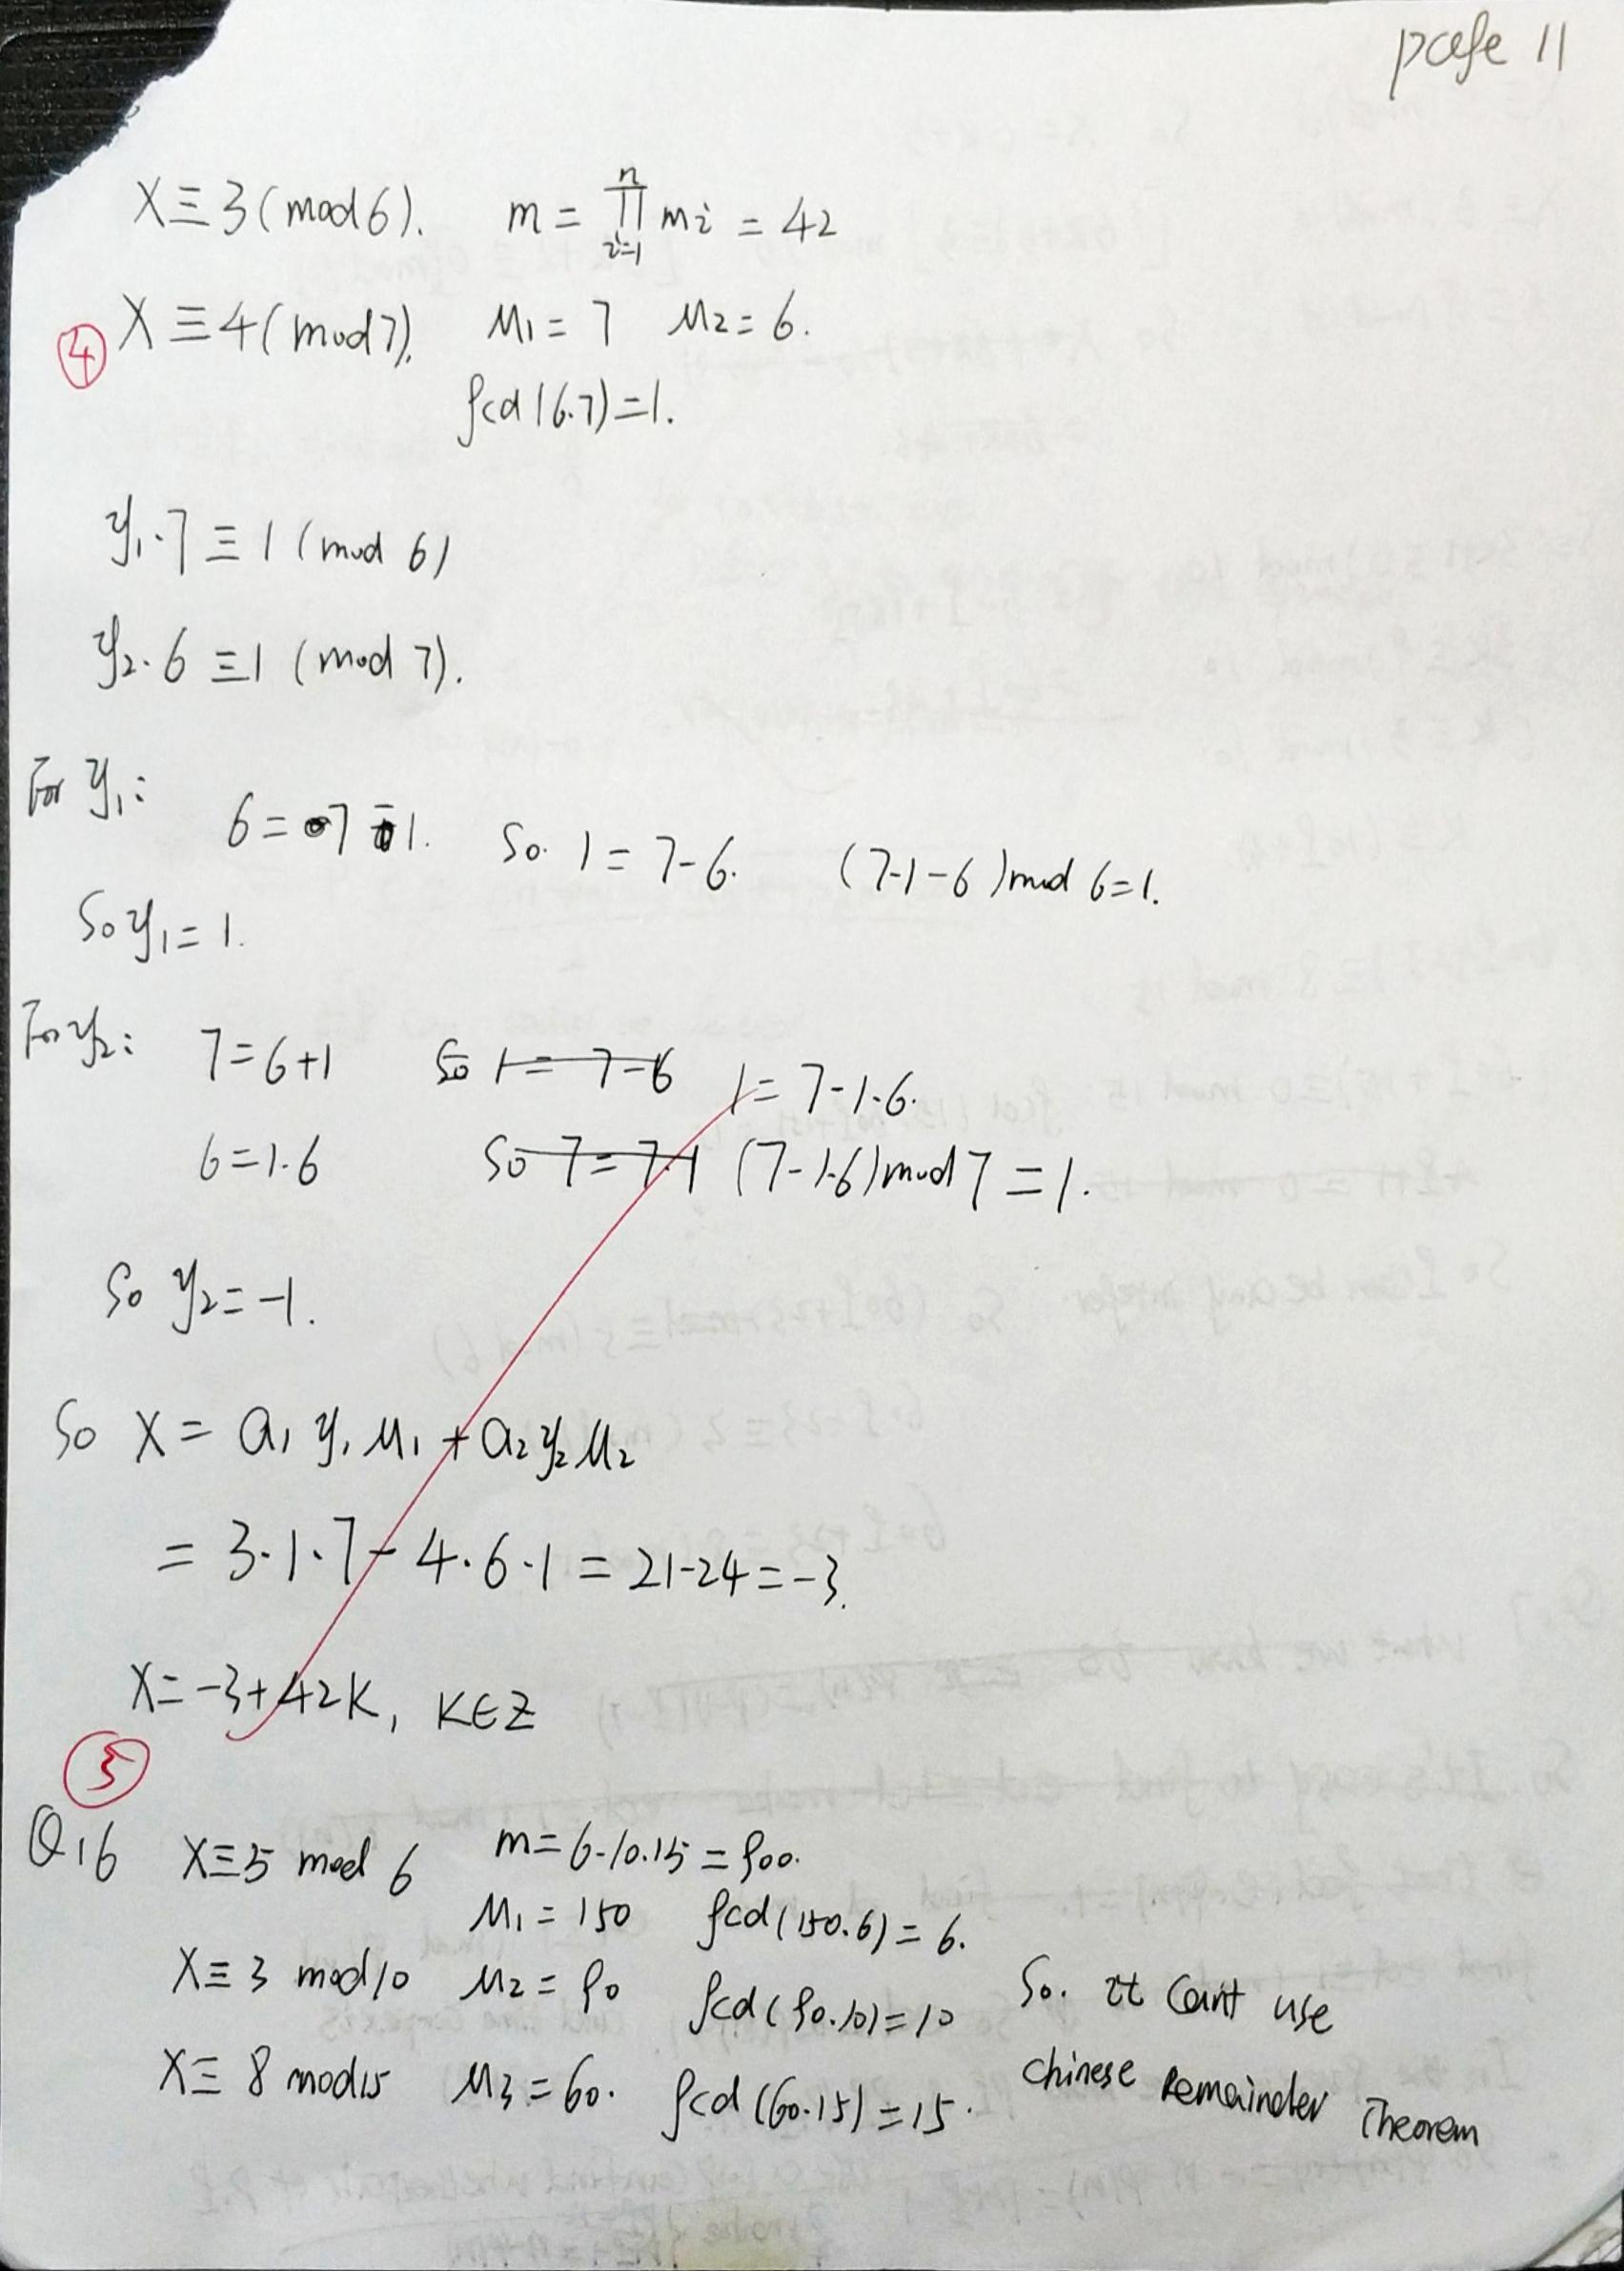 page 11
X ≡ 3 (mod 6). m = ∏_{i=1}^{n} mi = 42
④ X ≡ 4 (mod 7). M1 = 7 M2 = 6.
gcd(6.7) = 1.
y1·7 ≡ 1 (mod 6)
y2·6 ≡ 1 (mod 7).
For y1:
6 = 7 - 1. So. 1 = 7-6. (7·1-6) mod 6 = 1.
So y1 = 1.
For y2: 7 = 6+1 So 1 = 7-6 1 = 7-1·6.
6 = 1·6 So 7 = 7·1 (7-1·6) mod 7 = 1.
So y2 = -1.
So X = a1 y1 M1 + a2 y2 M2
= 3·1·7 - 4·6·1 = 21-24 = -3.
X = -3+42K, K∈Z
⑤
Q16 X ≡ 5 mod 6 m = 6·10·15 = 900.
M1 = 150 gcd(150.6) = 6.
X ≡ 3 mod 10 M2 = 90 gcd(90.10) = 10 So. it can't use
X ≡ 8 mod 15 M3 = 60. gcd(60.15) = 15. Chinese Remainder Theorem